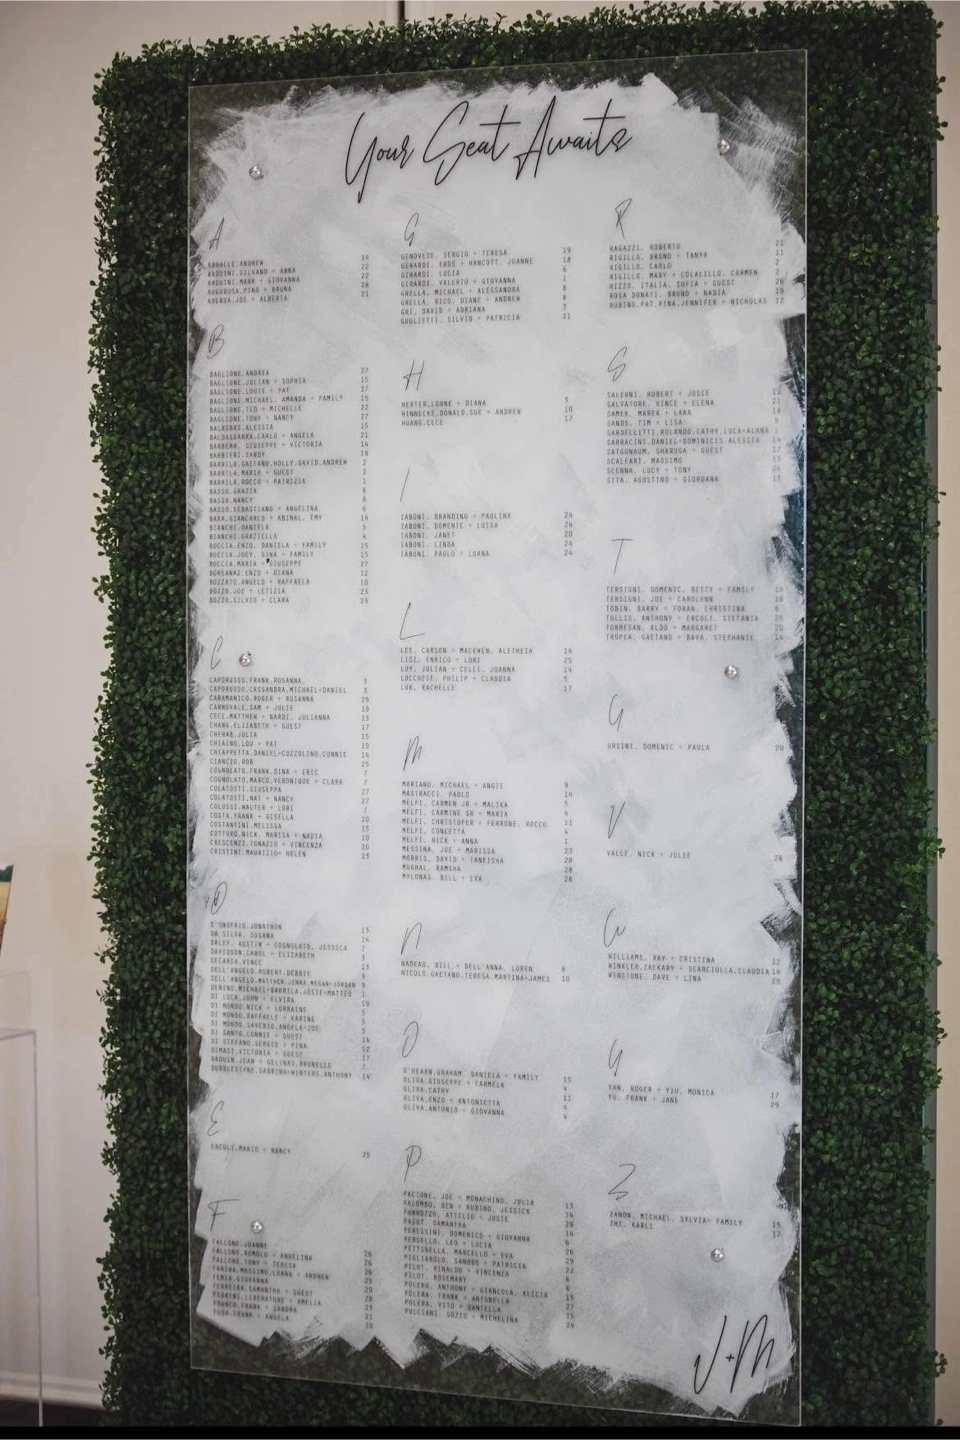 Your Seat Awaits
A
ABBALLE.ANDREW 14
ARDUINI.SILVANO + ANNA 22
ARDUINI.MARK + GIOVANNA 22
AUGURUSA.PINO + BRUNA 28
AVERSA.JOE + ALBERTA 21
B
BAGLIONE.ANDREA 27
BAGLIONE.JULIAN + SOPHIA 15
BAGLIONE.LOUIE + PAT 27
BAGLIONI.MICHAEL, AMANDA + FAMILY 15
BAGLIONE.TED + MICHELLE 22
BAGLIONE.TONY + NANCY 27
BALASBAS.ALESSIA 15
BALDASSARRA.CARLO + ANGELA 21
BARBERA, GIUSEPPE + VICTORIA 14
BARBIERI.SANDY
BARRILA.GAETANO.HOLLY.DAVID.ANDREW 2
BARRILA.MARIO + GUEST 2
BARRILA.ROCCO + PATRIZIA 1
BASSO.GRAZIA 6
BASSO.NANCY
BASSO.SEBASTIANO + ANGELINA 6
BAVA.GIANCARLO + ABINAL, EMY 14
BIANCHI.DANIELA 5
BIANCHI.GRAZIELLA 4
BOCCIA.ENZO, DANIELA + FAMILY 15
BOCCIA.JOEY, GINA + FAMILY 15
BOCCIA.MARIA + GIUSEPPE 27
BOREANAZ.ENZO + DIANA 12
BOZZATO.ANGELO + RAFFAELA 10
BOZZO.JOE + LETIZIA 23
BOZZO.SILVIO + CLARA 23
C
CAPORUSSO.FRANK.ROSANNA. 3
CAPORUSSO.CASSANDRA.MICHAEL+DANIEL 3
CARAMANICO.ROGER + ROSANNA 29
CARNOVALE.SAM + JULIE 19
CECE.MATTHEW + NARDI, JULIANNA 13
CHANG.ELIZABETH + GUEST 17
CHERAB.JULIA 15
CHIAINO.LOU + PAT 19
CHIAPPETTA.DANIEL+CUZZOLINO.CONNIE 14
CIANCIO.ROB 25
COGNOLATO.FRANK.DINA + ERIC 7
COGNOLATO.MARCO.VERONIQUE + CLARA 7
COLATOSTI.GIUSEPPA 27
COLATOSTI.NAT + NANCY 27
COLOSSI.WALTER + LORI 7
COSTA.FRANK + GISELLA 20
COSTANTINI.MELISSA 13
COTTURO.NICK, MARISA + NADIA 10
CRESCENZI.IGNAZIO + VINCENZA 20
CRISTINI.MAURIZIO+ HELEN 23
D
D'ONOFRIO.JONATHON 13
DA SILVA, SUSANA 14
DALEY, AUSTIN + COGNOLATO, JESSICA 7
DAVIDSON.CAROL + ELIZABETH 3
DECARIA.VINCE 13
DELL'ANGELO.ROBERT.DEBBIE 9
DELL'ANGELO.MATTHEW.JENNA.MEGAN+JORDAN 9
DENINO.MICHAEL+BARRILA.JOSIE+MATTEO 1
DI LUCA.JOHN + ELVIRA 19
DI MONDO.NICK + LORRAINE 5
DI MONDO.RAFFAELE + KARINE 5
DI MONDO.SAVERIO.ANGELA+ZOE 5
DI SANTO.CONNIE + GUEST 14
DI STEFANO.SERGIO + PINA 12
DIMASI.VICTORIA + GUEST 17
DROUIN.JEAN + GELINAS.BRUNELLE
DUBBLESTYNE.SABRINA+WINTERS.ANTHONY 14
E
ERCOLI.MARIO + NANCY 25
F
FALLONE.JOANNE 26
FALLONE.ROMOLO + ANGELINA 26
FALLONE.TONY + TERESA 26
FARINA.MASSIMO.LUANA + ANDREW 25
FERIA.GIOVANNA
FERREIRA.SAMANTHA + GUEST
FIORINI.LIBERATORE + AMELIA
FRANCO.FRANK + SANDRA 21
FUDA.FRANK + ANGELA 20
G
GENOVESE, SERGIO + TERESA 19
GERARDI, EROS + HANCOTT, JOANNE 18
GIRARDI, LUCIA 6
GIRARDI, VALERIO + GIOVANNA 1
GRELLA, MICHAEL + ALESSANDRA 8
GRELLA, RICO, DIANE + ANDREW 8
GRI, DAVID + ADRIANA 3
GUGLIETTI, SILVIO + PATRICIA 21
H
HERTER.LORNE + DIANA 3
HINNECKE.DONALD.SUE + ANDREW 10
HUANG.CECE 17
I
IABONI, BRANDINO + PAOLINA 24
IABONI, DOMENIC + LUISA 24
IABONI, JANET 20
IABONI, LINDA 24
IABONI, PAOLO + LUANA 24
L
LEE, CARSON + MACEWEN, ALETHEIA 14
LISI, ENRICO + LORI 25
LOY, JULIAN + CELLI, JOANNA 14
LUCCHESE, PHILIP + CLAUDIA 5
LUK, RACHELLE 17
M
MARIANO, MICHAEL + ANGIE 9
MASTRACCI, PAOLO
MELFI, CARMEN JR + MALIKA 5
MELFI, CARMINE SR + MARIA 4
MELFI, CHRISTOFER + FERRONE, ROCCO 11
MELFI, CONCETTA 4
MELFI, NICK + ANNA 1
MESSINA, JOE + MARISSA 23
MORRIS, DAVID + TANEISHA 28
MUGHAL, RAMSHA 28
MYLONAS, BILL + EVA 28
N
NADEAU, WILL + DELL'ANNA, LOREN 8
NICOLO.GAETANO.TERESA.MARTINA+JAMES 10
O
O'HEARN.GRAHAM, DANIELA + FAMILY 15
OLIVA.GIUSEPPE + CARMELA 4
OLIVA.CATHY 11
OLIVA.ENZO + ANTONIETTA 4
OLIVA.ANTONIO + GIOVANNA 4
P
PACIONE, JOE + MONACHINO, JULIA 13
PALOMBO, BEN + RUBINO, JESSICA 14
PANNOZZO, ATTILIO + JOSIE
PAGUE, SAMANTHA
PERESSINI, DOMENICO + GIOVANNA
PERGELLO, LEO + LUCIA
PETTINELLA, MARCELLO + EVA
PIGLIAROLO, SANDRO + PATRICIA
PILOT, RINALDO + VINCENZA
PILOT, ROSEMARY
POLERA, ANTHONY + GIANCOLA, ALICIA
POLERA, FRANK + ANTONELLA
POLERA, VITO + DANIELLA
PULCIANI, SOZIO + MICHELINA
R
RAGAZZI, ROBERTO 21
RIGILLO, BRUNO + TANYA 11
RIGILLO, CARLO 2
RIGILLO, MARY + COLALILLO, CARMEN 2
RIZZO, ITALIA, SOFIA + GUEST 26
ROSA DONATI, BRUNO + NADIA 19
RUBINO.PAT.PINA.JENNIFER + NICHOLAS 12
S
SALERNI, ROBERT + JOSIE 12
SALVATORE, VINCE + ELENA 21
SAMEK, MAREK + LARA
SANDS, TIM + LISA
SARDELLITTI.ROLANDO.CATHY.LUCA+ALANA
SARRACINI.DANIEL+DOMINICIS.ALESSIA 14
SATGUNAUM, SHARUGA + GUEST 17
SCALFARI, MASSIMO
SCENNA, LUCY + TONY
SITA, AGOSTINO + GIORDANA
T
TERSIGNI, DOMENIC, BETTY + FAMILY
TERSIGNI, JOE + CAROLYNN
TOBIN, BARRY + FORAN, CHRISTINA
TULLIS, ANTHONY + ERCOLI, STEFANIA
TORRESAN, ALDO + MARGARET
TROPEA, GAETANO + BAVA, STEPHANIE 14
U
URSINI, DOMENIC + PAULA 20
V
VALLE, NICK + JULIE 28
W
WILLIAMS, RAY + CRISTINA 22
WINKLER.ZACKARY + SCARCIOLLA.CLAUDIA 14
WINSTONE, DAVE + LINA 29
Y
YAN, ROGER + YIU, MONICA 17
YU, FRANK + JANE 29
Z
ZANON, MICHAEL, SYLVIA+ FAMILY 15
ZHI, KARLI 17
J+M